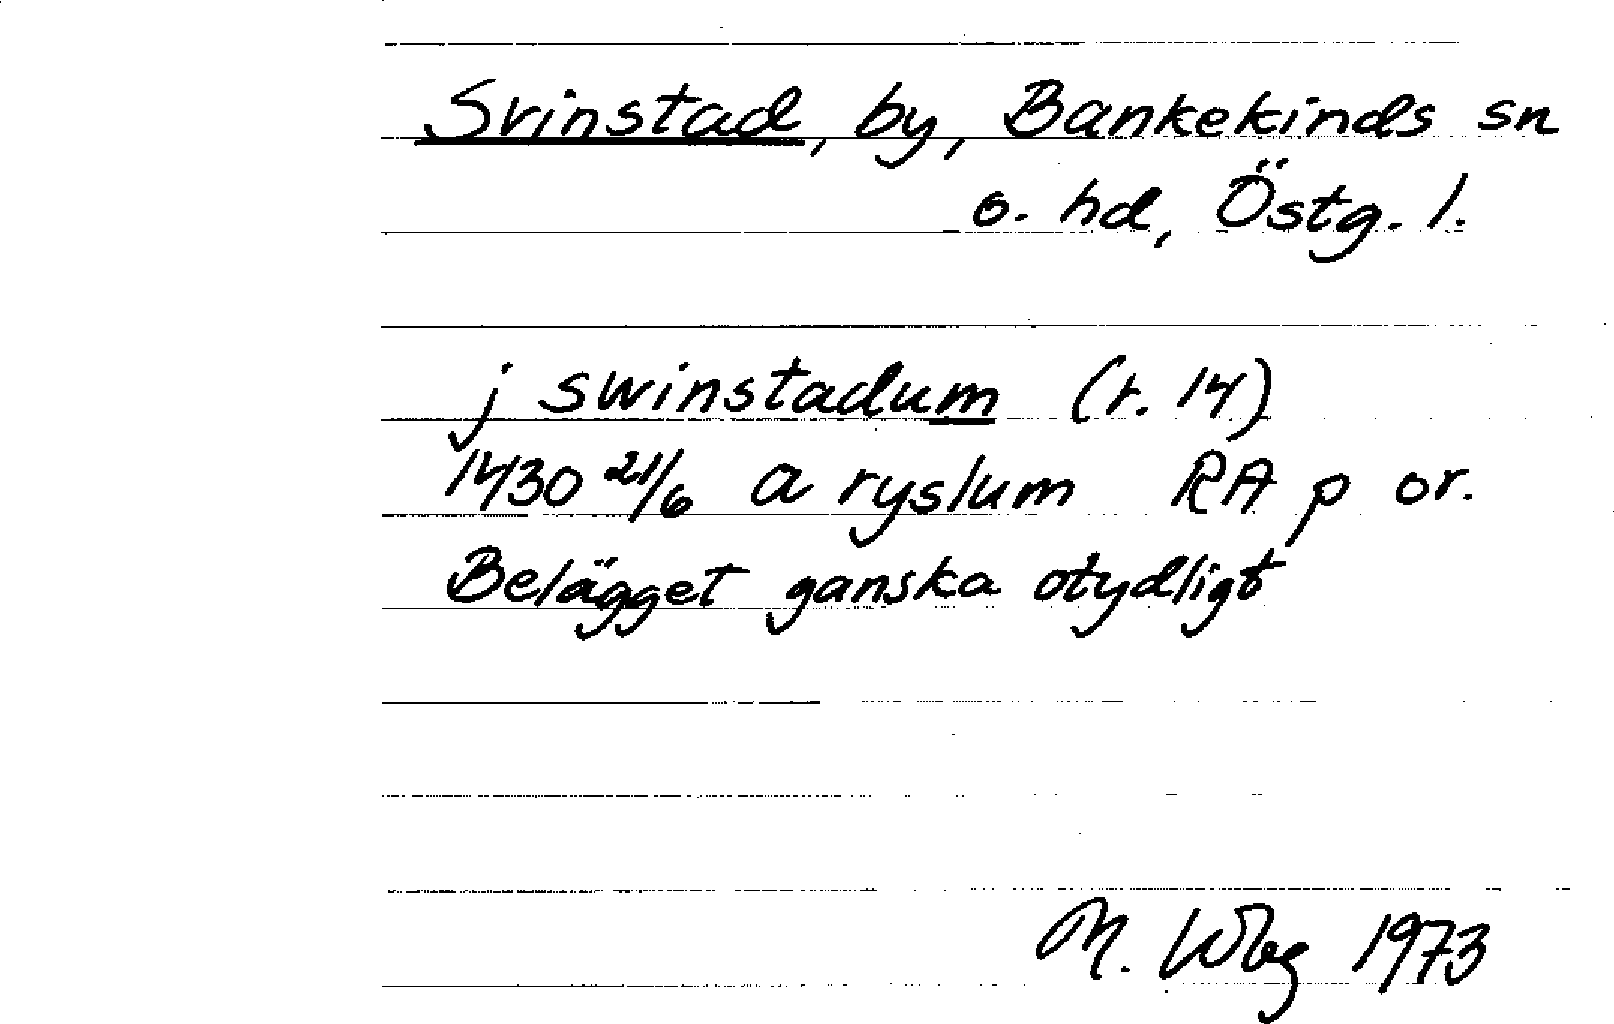 Svinstad, by, Bankekinds sn
o. hd, Östg. l.
j swinstadum (r. 14)
1430 21/6 a ryslum RA p or.
Belägget ganska otydligt
M. Wbg 1973